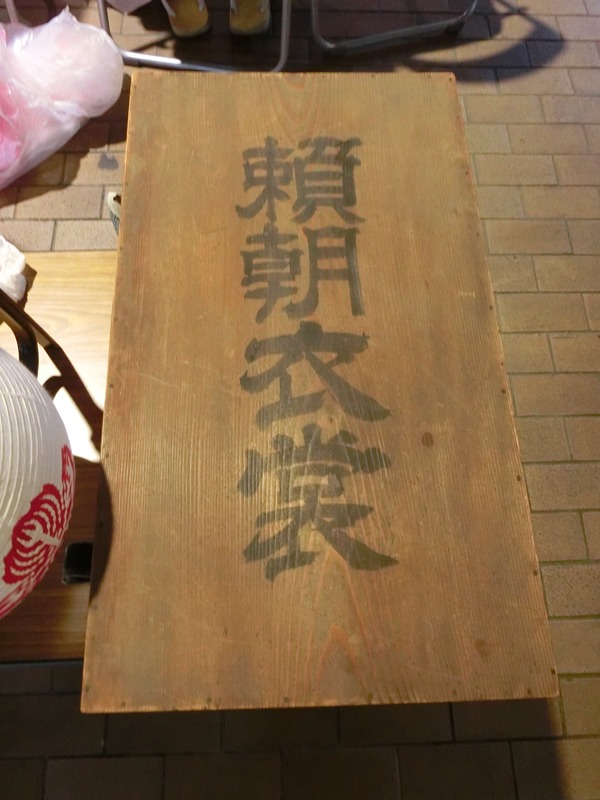 頼朝衣裳